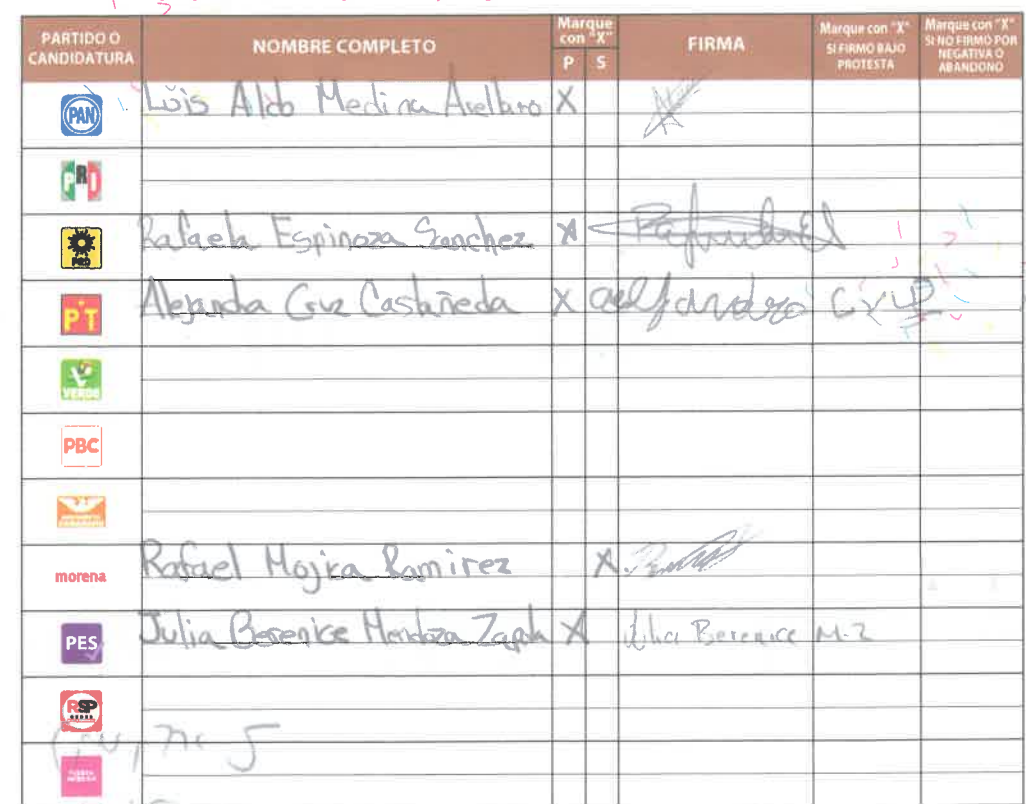 PARTIDO O CANDIDATURA NOMBRE COMPLETO Marque con "X" P S FIRMA Marque con "X" SI FIRMO BAJO PROTESTA Marque con "X" SI NO FIRMO POR NEGATIVA O ABANDONO
PAN Luis Aldo Medina Arellano X
PRI
PRD Rafaela Espinoza Sanchez X
PT Alejandra Cruz Castañeda X
VERDE
PBC
morena Rafael Mojica Ramirez X
PES Julia Berenice Mendoza Zapata X Julia Berenice M-Z
RSP